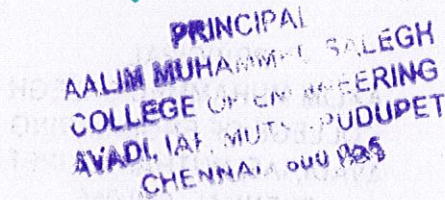 PRINCIPAL
AALIM MUHAMMED SALEGH
COLLEGE OF ENGINEERING
AVADI, IAF, MUTH PUDUPET
CHENNAI, 600